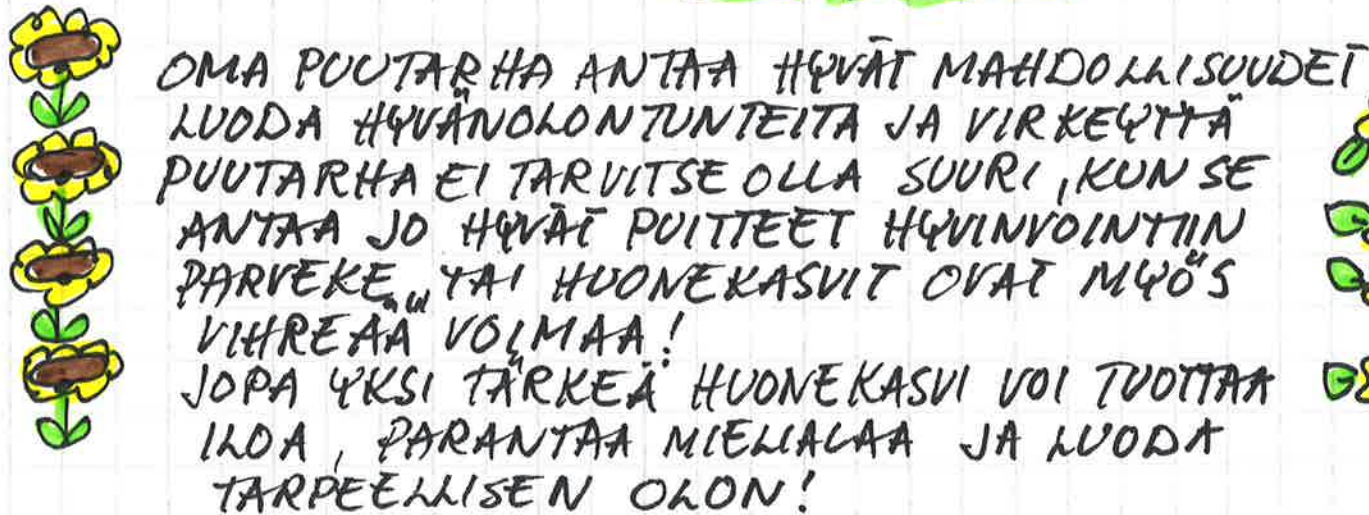 OMA PUUTARHA ANTAA HYVÄT MAHDOLLISUUDET
LUODA HYVÄNOLONTUNTEITA JA VIRKEYTTÄ
PUUTARHA EI TARVITSE OLLA SUURI, KUN SE
ANTAA JO HYVÄT PUITTEET HYVINVOINTIIN
PARVEKE TAI HUONEKASVIT OVAT MYÖS
VIHREÄÄ VOIMAA!
JOPA YKSI TÄRKEÄ HUONEKASVI VOI TUOTTAA
ILOA, PARANTAA MIELIALAA JA LUODA
TARPEELLISEN OLON!